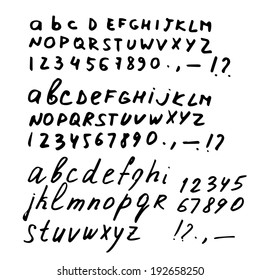 abcDEFGHIJKLM
NOPQRSTUVWXYZ
1234567890.,—!?
abcDEFGHIJKLM
NOPQRSTUVWXYZ
1234567890.,—!?
abcdefghi
12345
jklmnopqR
67890
stuvwxyz
!?.,—
shutterstock.com · 192658250